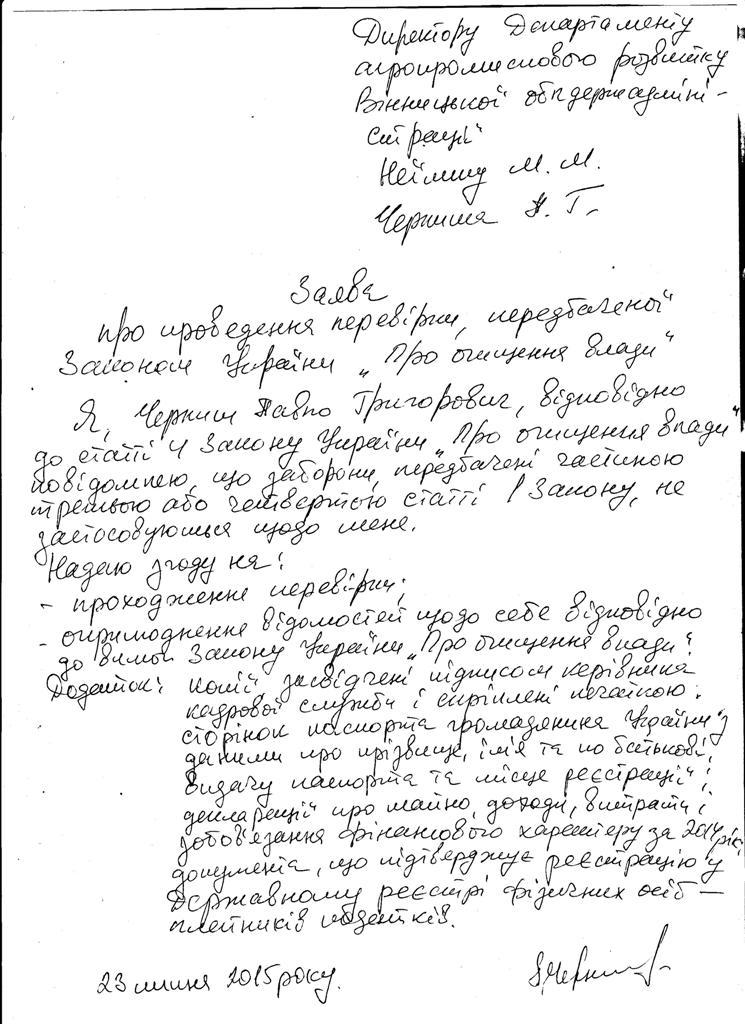 Директору Департаменту
агропромислового розвитку
Вінницької облдержадміні-
страції
Неїлику М. М.
Черниша П. Г.
Заява
про проведення перевірки, передбаченої
Законом України „Про очищення влади"
Я, Черниш Павло Григорович, відповідно
до статті 4 Закону України „Про очищення влади"
повідомляю, що заборони, передбачені частиною
третьою або четвертою статті 1 Закону, не
застосовуються щодо мене.
Надаю згоду на:
- проходження перевірки;
- оприлюднення відомостей щодо себе відповідно
до вимог Закону України „Про очищення влади".
Додаток: копії засвідчені підписом керівника
кадрової служби і скріплені печаткою:
сторінок паспорта громадянина України з
даними про прізвище, ім'я та по батькові,
видачу паспорта та місце реєстрації;
декларації про майно, доходи, витрати і
зобов'язання фінансового характеру за 2014 рік;
документа, що підтверджує реєстрацію у
Державному реєстрі фізичних осіб –
платників податків.
23 липня 2015 року.